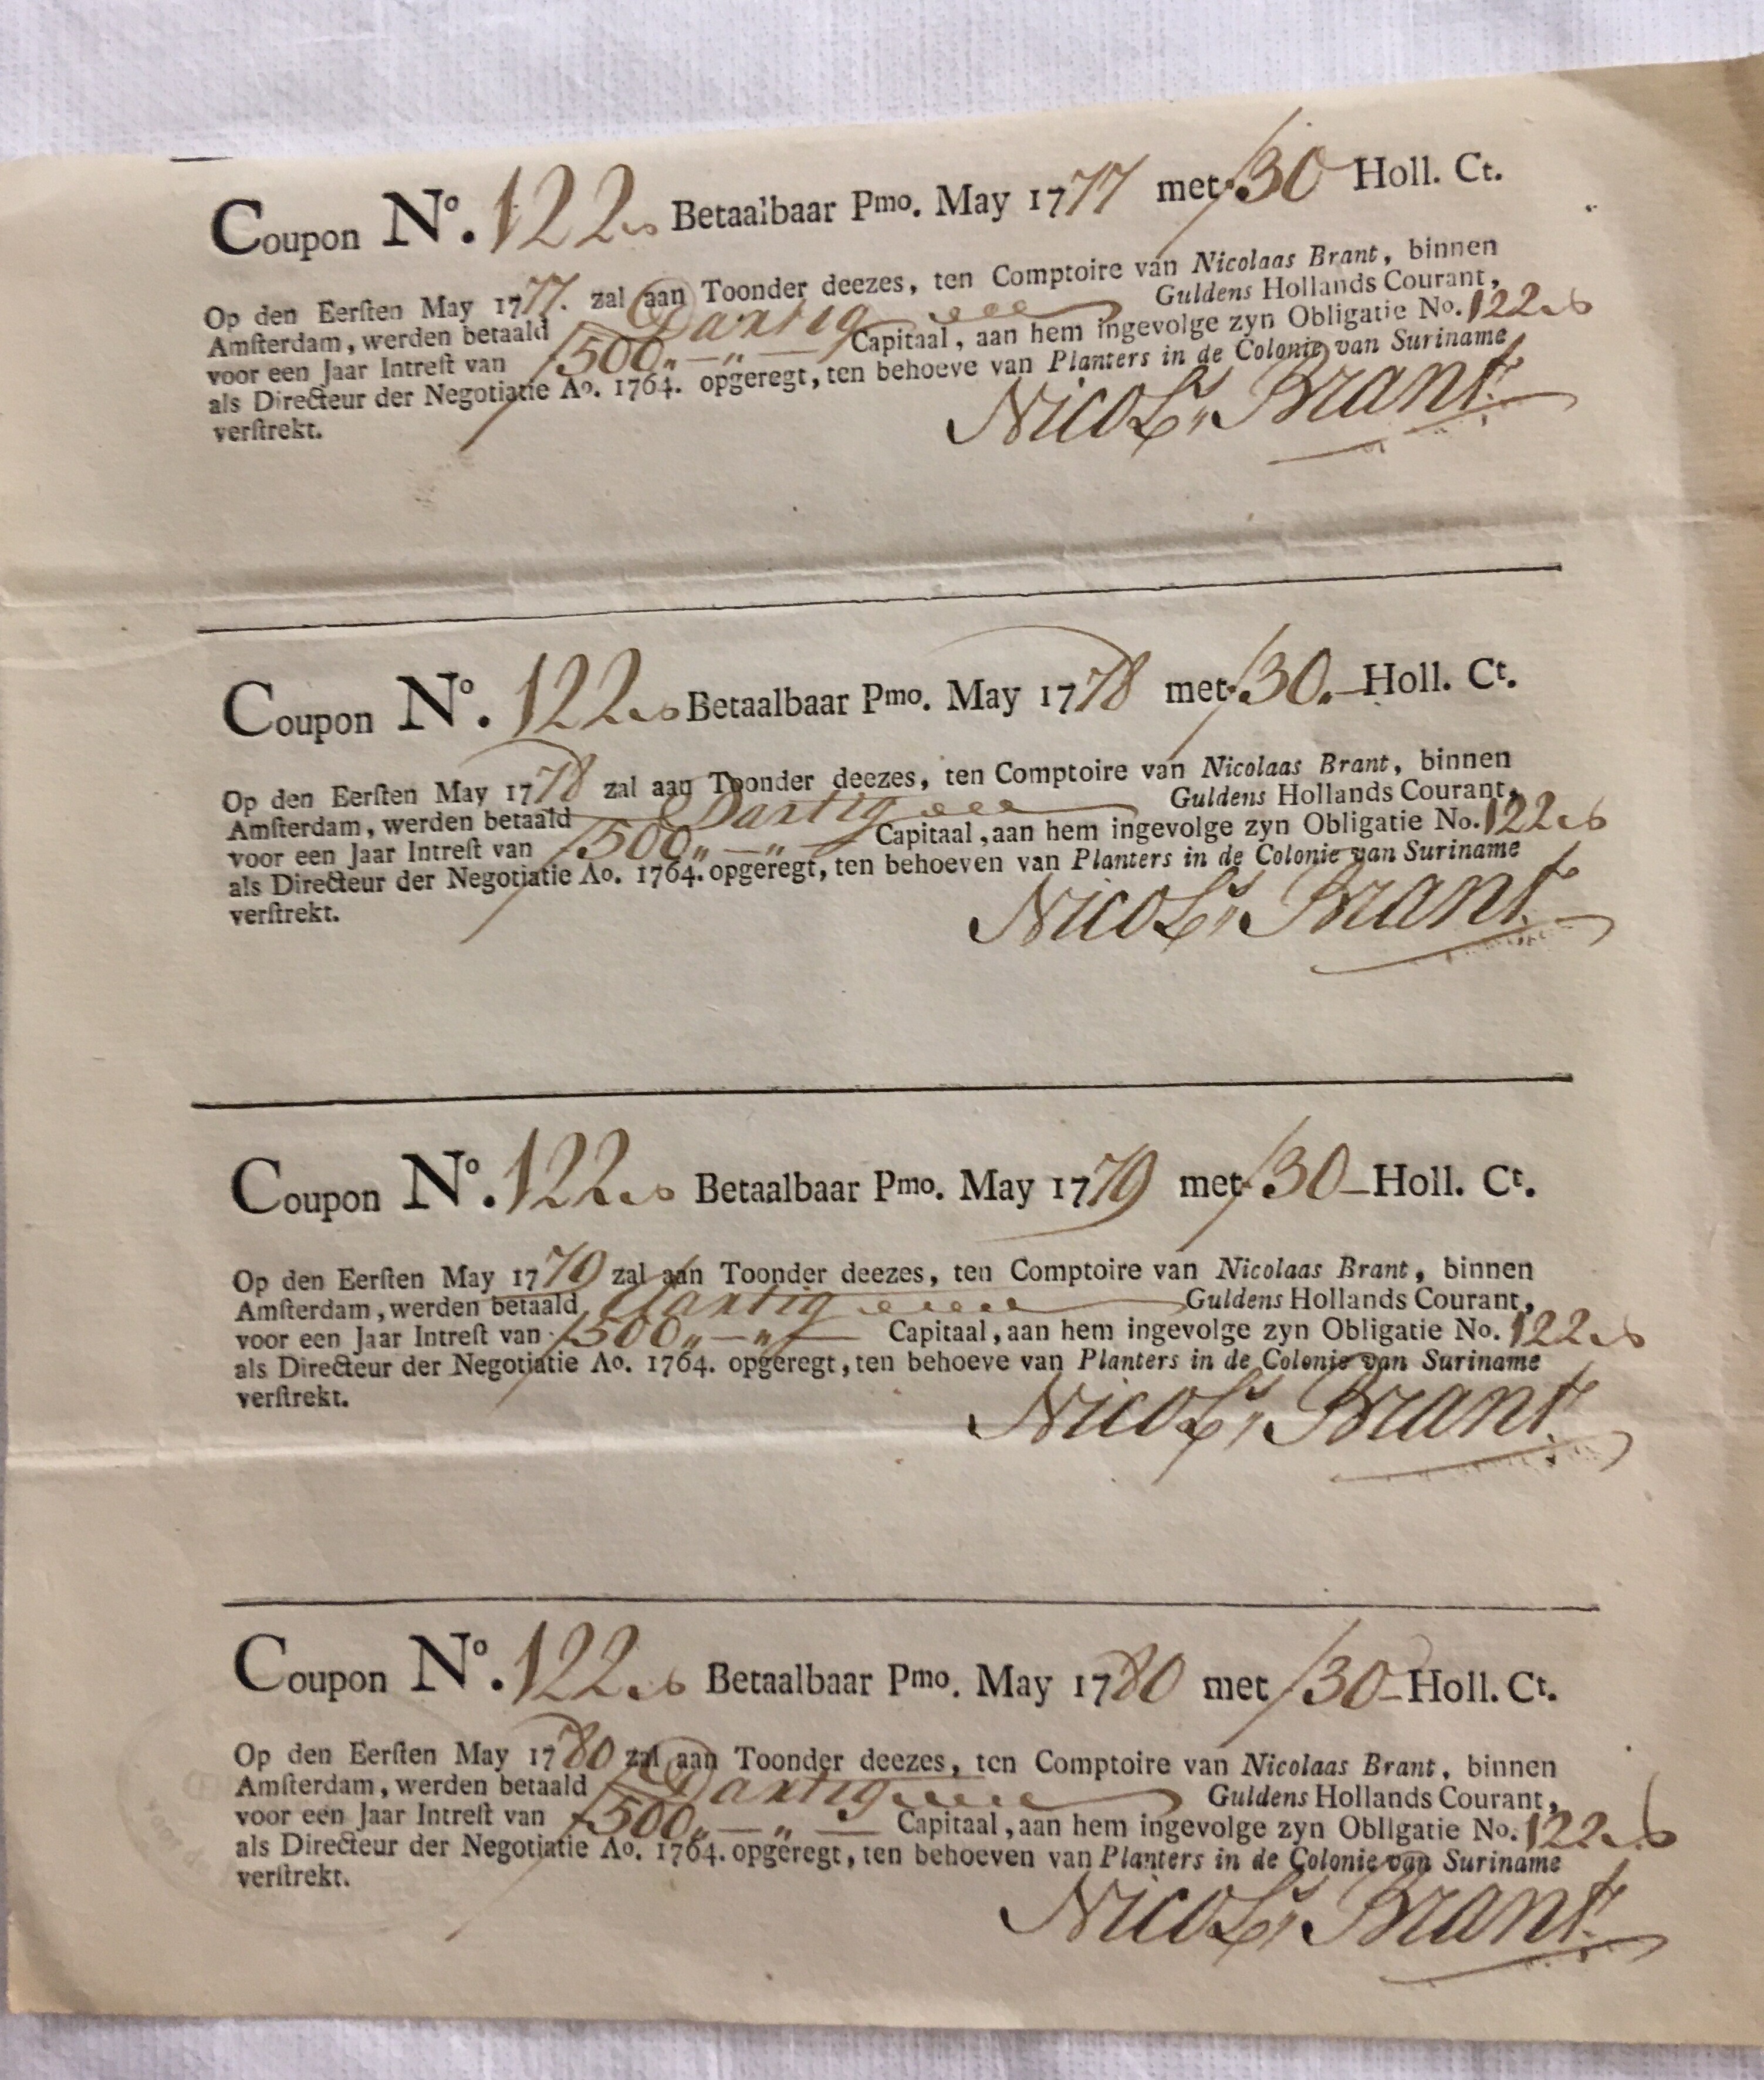 Coupon No. 122 b Betaalbaar Pmo. May 1777 met ƒ30 Holl. Ct.
Op den Eerſten May 1777. zal aan Toonder deezes, ten Comptoire van Nicolaas Brant, binnen
Amſterdam, werden betaald Dartig Guldens Hollands Courant,
voor een Jaar Intreſt van ƒ500„—„— Capitaal, aan hem ingevolge zyn Obligatie No. 122 b
als Directeur der Negotiatie Ao. 1764. opgeregt, ten behoeve van Planters in de Colonie van Suriname
verſtrekt.
Nicols„ Brant
Coupon No. 122 b Betaalbaar Pmo. May 1778 met ƒ30.— Holl. Ct.
Op den Eerſten May 1778 zal aan Toonder deezes, ten Comptoire van Nicolaas Brant, binnen
Amſterdam, werden betaald Dartig Guldens Hollands Courant,
voor een Jaar Intreſt van ƒ500„—„— Capitaal, aan hem ingevolge zyn Obligatie No. 122 b
als Directeur der Negotiatie Ao. 1764. opgeregt, ten behoeven van Planters in de Colonie van Suriname
verſtrekt.
Nicols„ Brant
Coupon No. 122 b Betaalbaar Pmo. May 1779 met ƒ30— Holl. Ct.
Op den Eerſten May 1779 zal aan Toonder deezes, ten Comptoire van Nicolaas Brant, binnen
Amſterdam, werden betaald dartig Guldens Hollands Courant,
voor een Jaar Intreſt van ƒ500„—„— Capitaal, aan hem ingevolge zyn Obligatie No. 122 b
als Directeur der Negotiatie Ao. 1764. opgeregt, ten behoeve van Planters in de Colonie van Suriname
verſtrekt.
Nicols„ Brant
Coupon No. 122 b Betaalbaar Pmo. May 1780 met ƒ30— Holl. Ct.
Op den Eerſten May 1780 zal aan Toonder deezes, ten Comptoire van Nicolaas Brant, binnen
Amſterdam, werden betaald Dartig Guldens Hollands Courant,
voor een Jaar Intreſt van ƒ500„—„— Capitaal, aan hem ingevolge zyn Obligatie No. 122 b
als Directeur der Negotiatie Ao. 1764. opgeregt, ten behoeven van Planters in de Colonie van Suriname
verſtrekt.
Nicols„ Brant